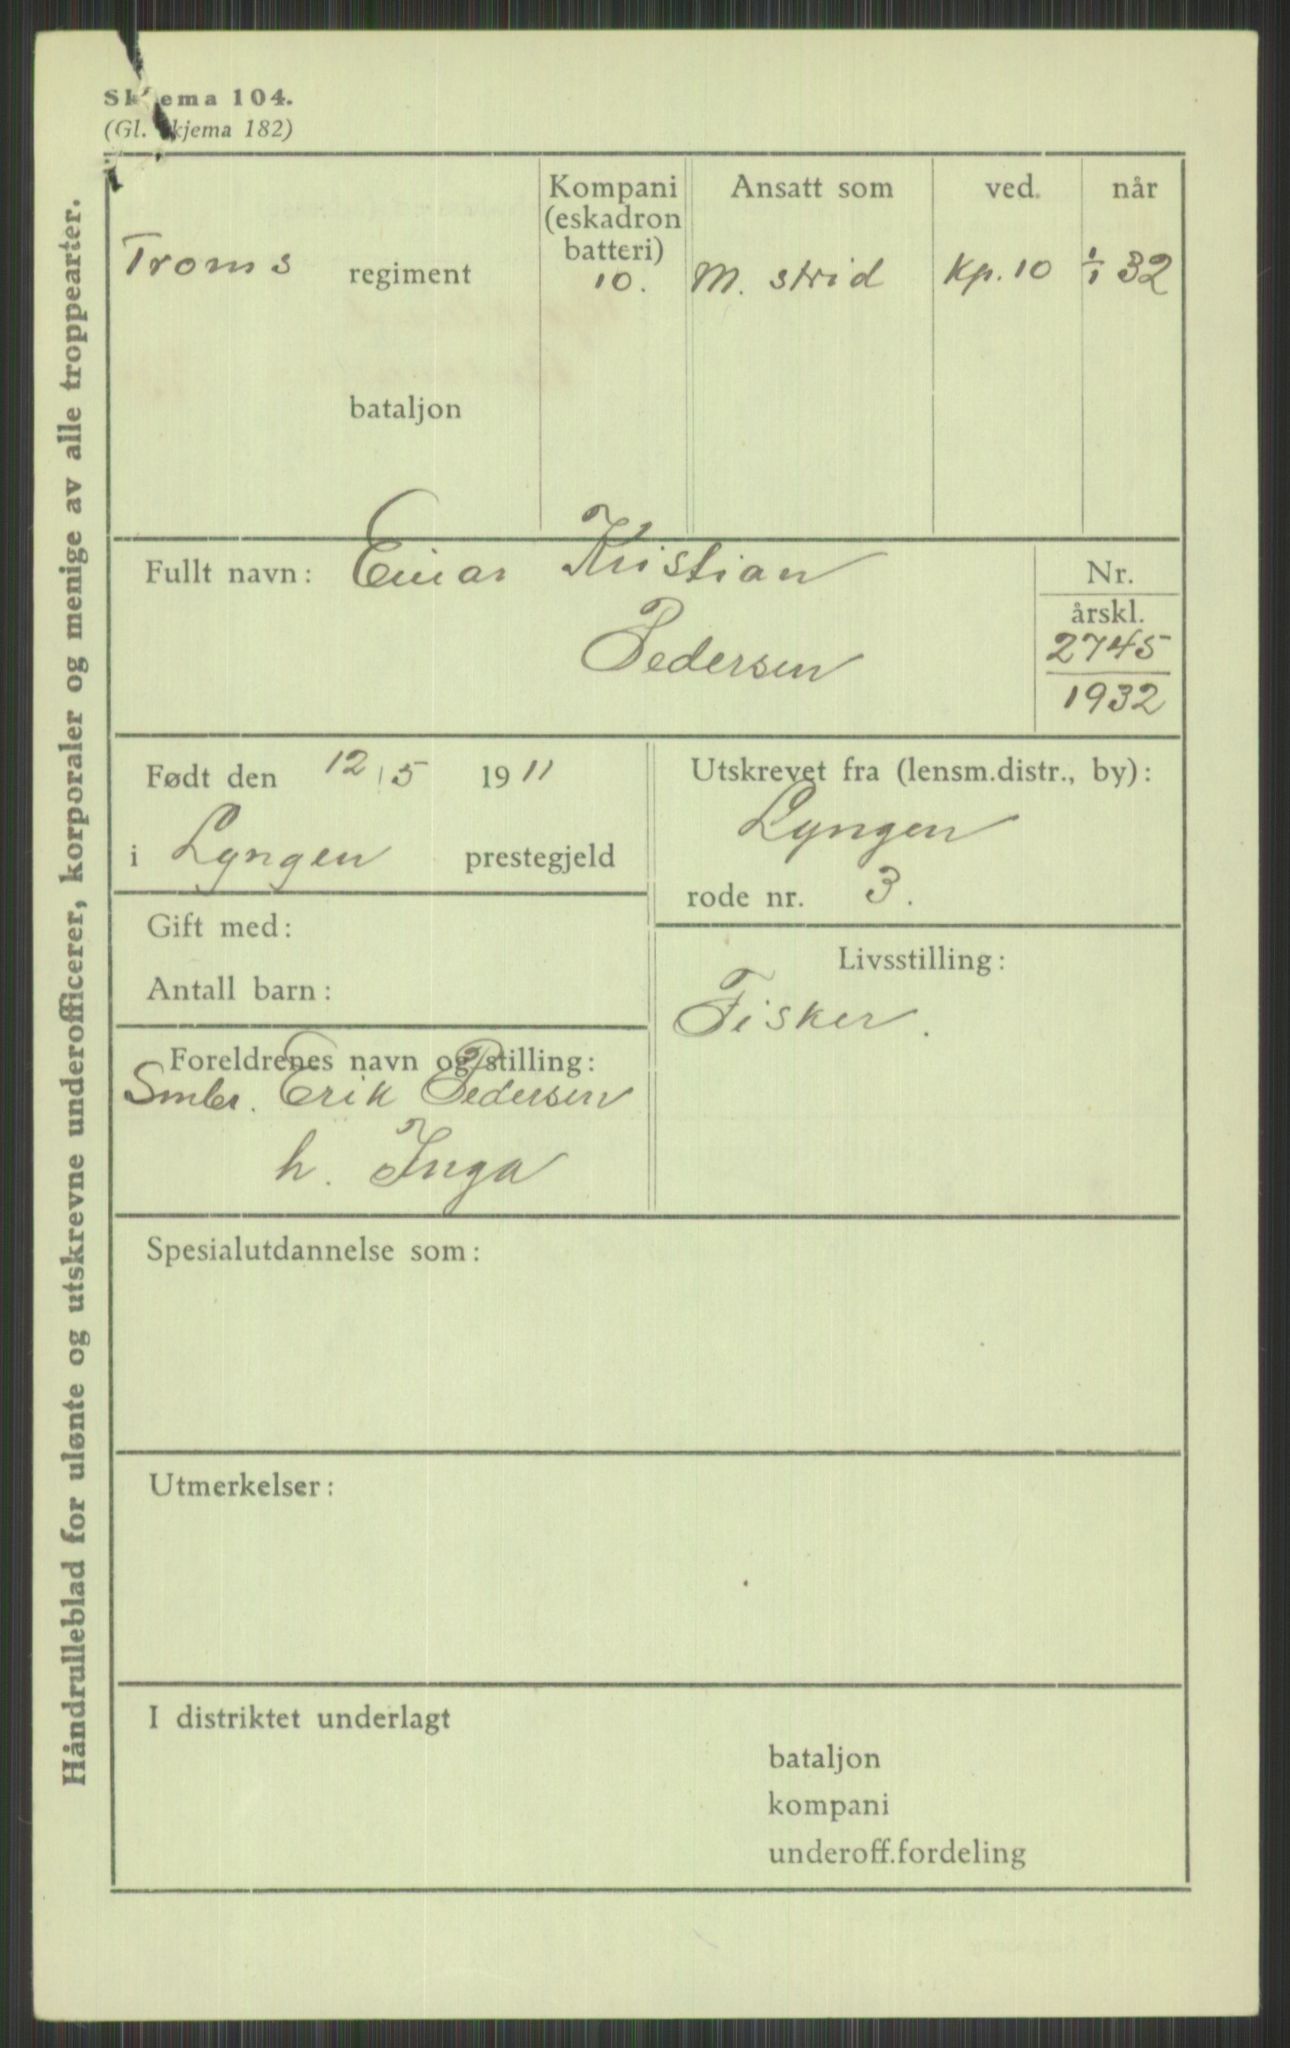 Skjema 104.
(Gl. skjema 182)
Håndrulleblad for ulønte og utskrevne underofficerer, korporaler og menige av alle troppearter.
Troms regiment
bataljon
Kompani
(eskadron
batteri)
10.
Ansatt som
M. strid
ved.
Kp. 10
når
1/1 32
Fullt navn: Einar Kristian
Pedersen
Nr.
årskl.
2745
1932
Født den 12/5 1911
i Lyngen prestegjeld
Utskrevet fra (lensm.distr., by):
Lyngen
rode nr. 3.
Gift med:
Antall barn:
Livsstilling:
Fisker.
Foreldrenes navn og stilling:
Smbr. Erik Pedersen
h. Inga
Spesialutdannelse som:
Utmerkelser:
I distriktet underlagt
bataljon
kompani
underoff.fordeling